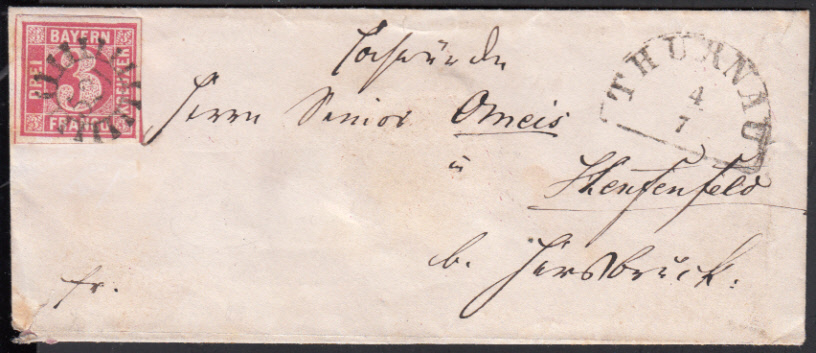 BAYERN
DREI
3
KREUZER
FRANCO
THURNAU
4
7
Hochwürden
Herrn Senior Omeis
in
Henfenfeld
b. Hersbruck.
fr.